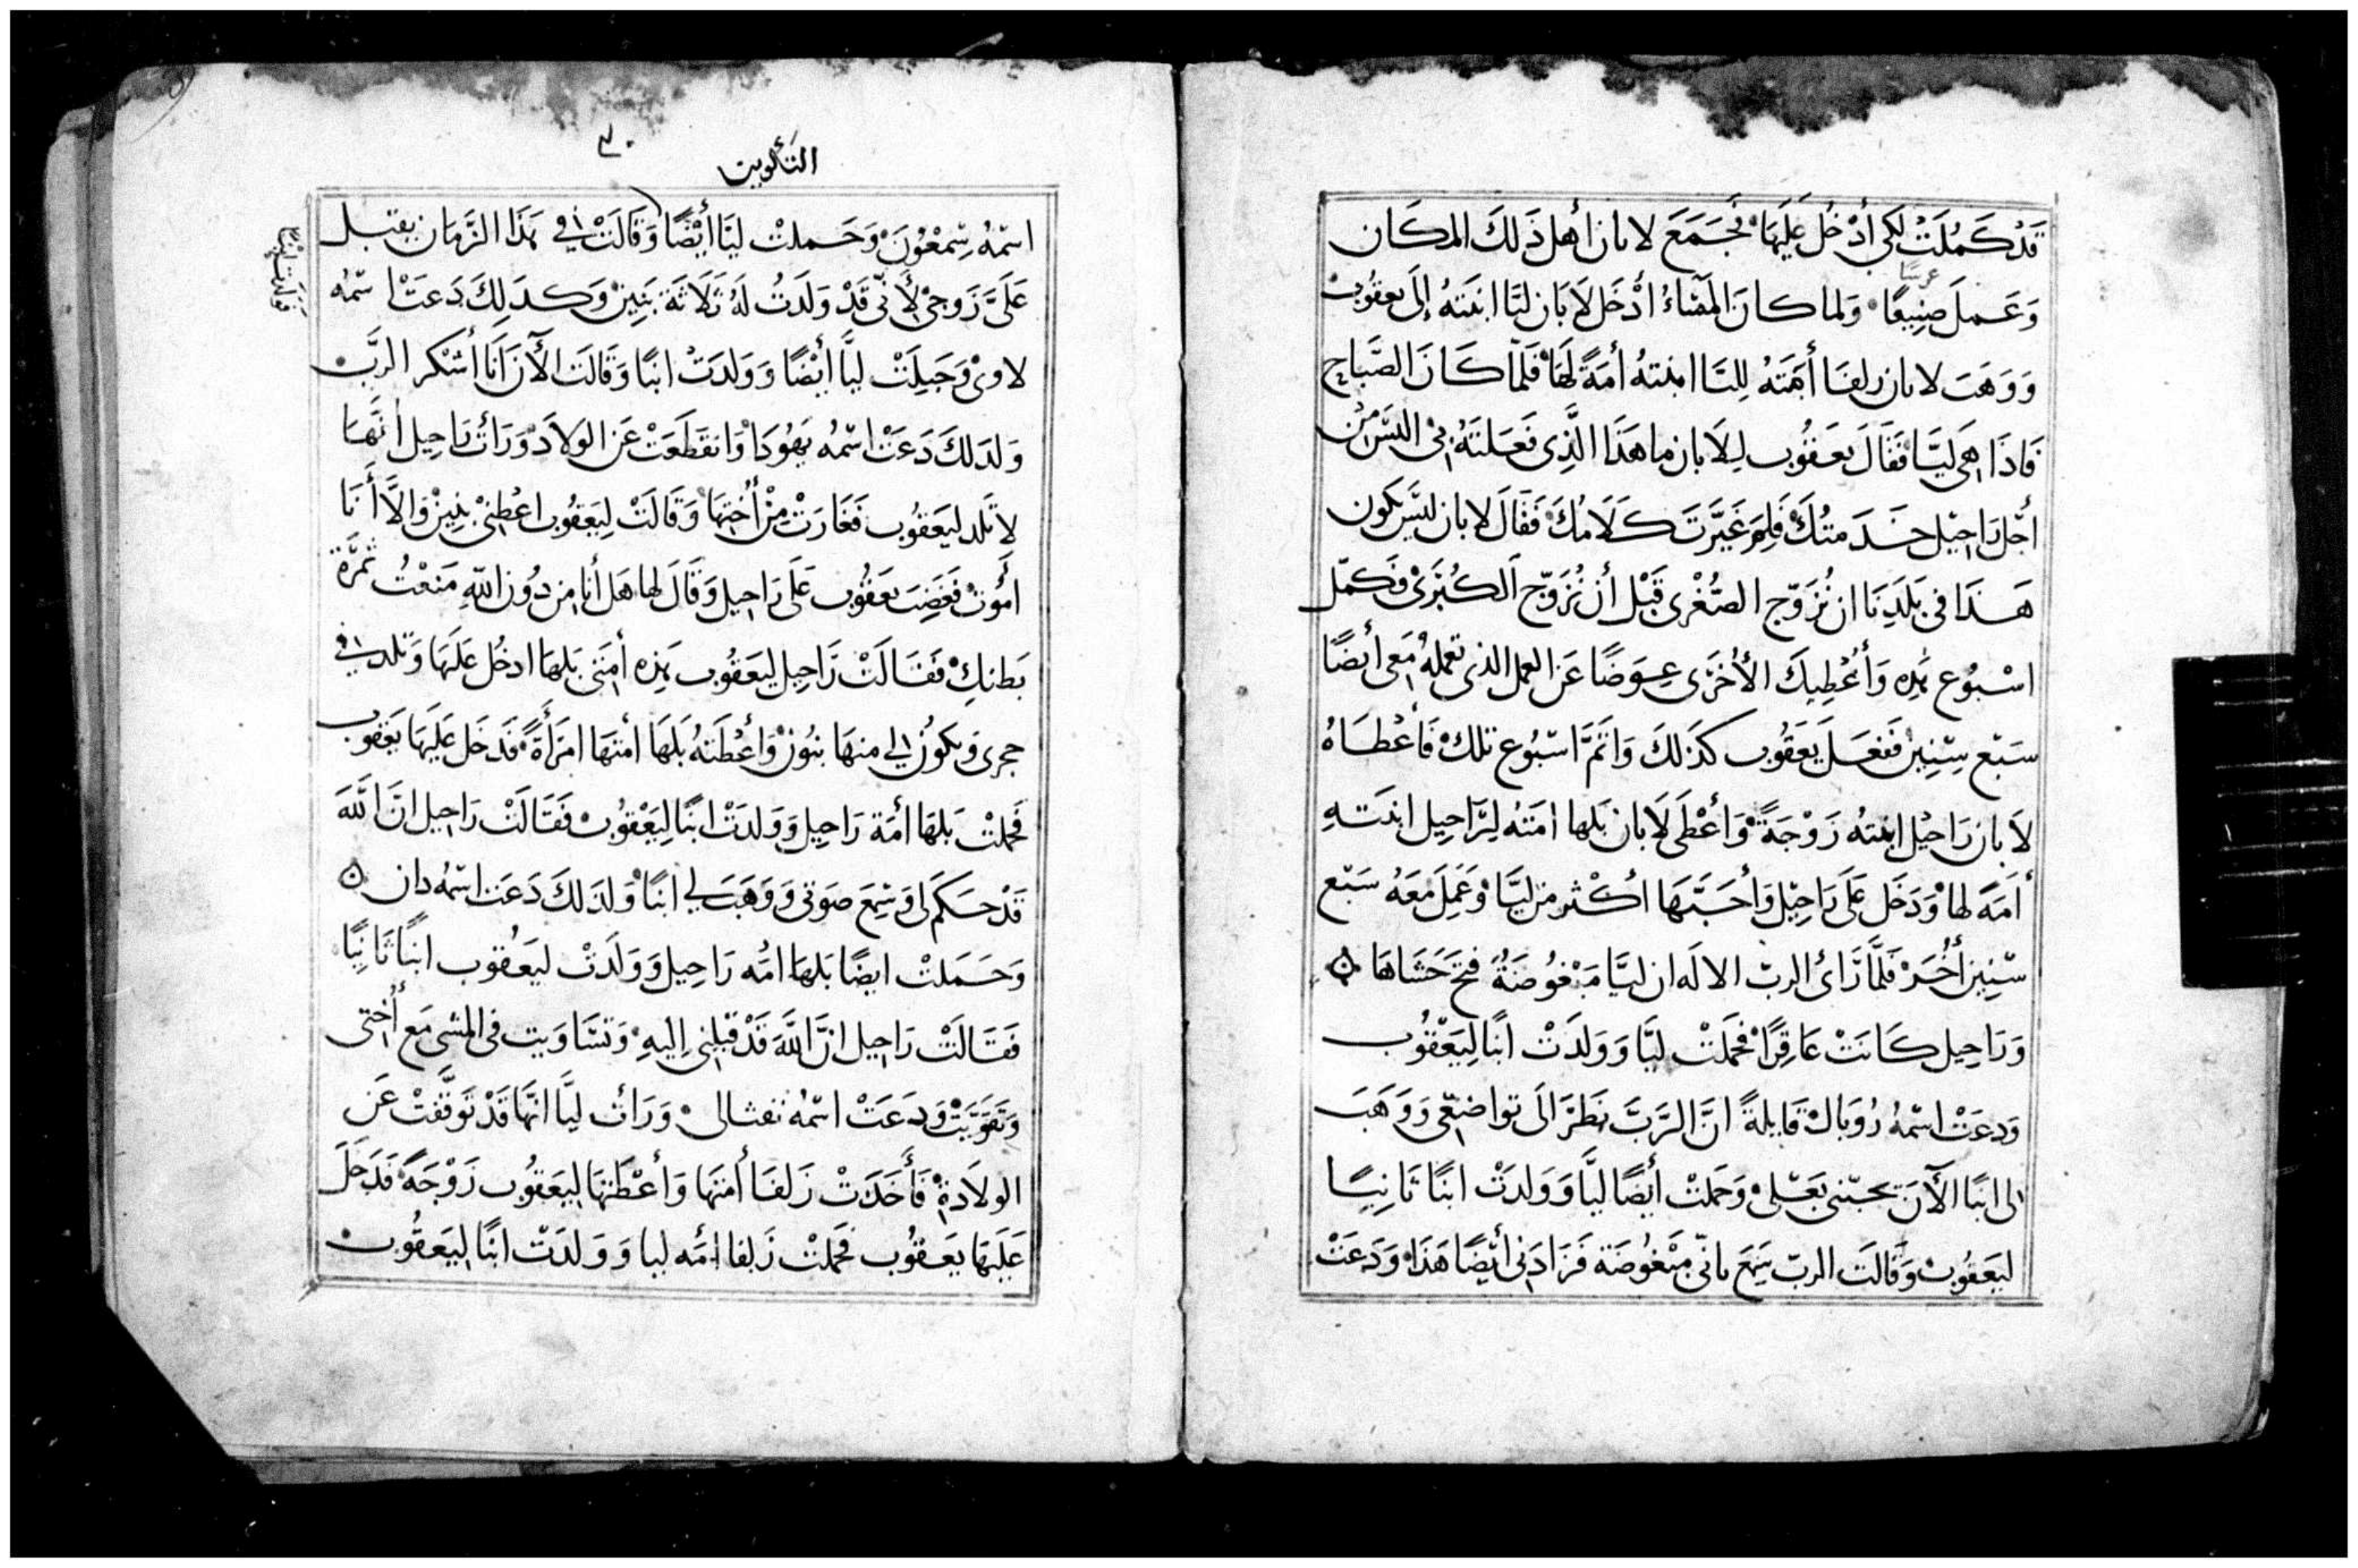 قَدْ كَمُلَتْ لَكي أدْخُل عَلَيهَا فجَمَعَ لابان أهل ذَلكَ المكَان
عرسًا
وَعَملَ صنِيعًا ولما كانَ المَسَاءُ أدْخَل لَابَان ليَّا ابنَتهُ إلَى يعقُوبْ
وَوَهَبَ لابان زلفَا أمَتَهُ لليَّا ابنته أمَةً لَهَا فَلَمَّا كَانَ الصَّبَاح
فَاذَا هي ليَّا فَقَالَ يَعقُوب لِلَابان ما هَذَا الَّذِي فَعَلتَهُ بي اليسَ مِنْ
أجْل رَاحيْل خَدَمتُكَ فَلِمَ غَيَّرتَ كَلَامُكَ فَقَالَ لابان ليسَ يكون
هَذَا في بَلَدِنَا ان نُزَوّج الصُّغْرى قَبْل أن نُزَوّج الكُبْرَى فكمّل
اسْبُوع هَذِه وَأُعْطِيكَ الأُخرَى عِوَضًا عَن العمل الذي تعملهُ مَعي أيضًا
سَبْع سِنِينْ فَفعَل يَعقُوب كَذَلكَ وَاتَمَّ اسْبُوع تلكْ فَأعْطَاهُ
لَابان رَاحيْل ابنتهُ زَوْجَةً وَأعْطَى لَابان بَلها امَتَهُ لِرَاحِيل ابنَتهِ
أَمَةً لها وَدَخَل عَلَى رَاحيْل وَأحَبّهَا اكْثر من ليَّا وَعَمِلَ مَعَهُ سَبْع
سنِين أُخَرْ فَلَمَّا رَائ الربّ الالَه ان ليَّا مَبْغُوضَةً فتحَ حَشَاهَا
وَرَاحِيل كَانَتْ عَاقِرًا فَحَمَلَتْ ليَّا وَوَلَدَتْ ابنًا لِيَعْقُوب
وَدعَتْ اسْمهُ رُوبَالْ قَايلةً انَّ الرَّبَّ نَظَرَ الَى تواضعي وَوَهَبَ
لى ابنًا الآنَ يحبّني بَعْلى وَحَملتْ أيْضًا ليَّا وَوَلدتْ ابنًا ثَانِيًا
ليَعقُوبْ وَقَالَت الربّ سَمِعَ بانّي مَبْغُوضَة فَزَادَني أيْضًا هَذَا وَدَعَتْ
٣٠
التكوين
اسْمُهُ سِّمْعُونَ وَحَملتْ ليَّا أيْضًا وَقَالَتْ في هَذَا الزَّمَان يقبل
عَلَيَّ زَوجيْ لأنّي قَدْ وَلَدتُ لَهُ ثَلَاثَة بَنِينْ وَكدَلِكَ دَعَتْ اسّمُه
لاوىْ وَحَبِلَتْ ليَّا أيْضًا وَوَلدَتْ ابنًا وَقَالَت الآنَ أنَا أشكر الربَّ
وَلدَلكَ دَعَتْ اسْمُه يَهُودَا وَانقَطَعَتْ عَن الولَادْ وَرَأتْ رَاحِيل أنَّهَا
لا تَلد ليَعقُوب فَغَارَتْ مِنْ أُخْتِهَا وَقَالَتْ لِيَعْقُوب اعْطِنيْ بنِينْ وَالاَّ أنَا
أمُوتْ فَغَضِبَ يَعقُوب عَلَى رَاحيل وَقَالَ لها هَل أنا من دُون اللّه مَنَعْتُ ثَمَرَة
بَطنِكِ فَقَالَتْ رَاحِيل ليَعقُوب هَذِه أمَتي بَلهَا ادخُل عَلَيهَا وَتلد في
حجرى وَيكونُ لي منهَا بنُونْ وَأعْطَتهُ بَلهَا أمَتها امرَأةً فَدَخَل عَلَيهَا يَعقُوب
فَحَملتْ بَلهَا أمَة رَاحِيل وَوَلدَتْ ابنًا لِيَعْقُوبْ فَقَالَتْ رَاحِيل انَّ اللَّهَ
قَدْ حكَمَ لي وَسَمِعَ صَوتى وَوَهَبَ لي ابنًا وَلدَلكَ دَعَت اسْمهُ دان
وَحَمَلتْ ايضًا بَلها امَه رَاحِيل وَوَلَدَتْ ليَعقوب ابنًا ثَانِيًا
فَقَالَتْ رَاحِيل انَّ اللَّهَ قَدْ قبلني إليهِ وَتسَاوَيت في المشي مَع أُختى
وَتقَوَيَتْ وَدَعَتْ اسْمُهُ نفثالى وَرَاتْ ليَّا انَّهَا قَدْ تَوَقَّفتْ عَن
الولَادَةْ فَأخَدَتْ زَلفَا أمَتهَا وَأعْطَتهَا ليَعقُوب زَوْجَةً فَدَخَلَ
عَلَيهَا يَعقُوب فَحَملتْ زَلفا امَه ليا وَوَلدَتْ ابنًا ليَعقُوبْ